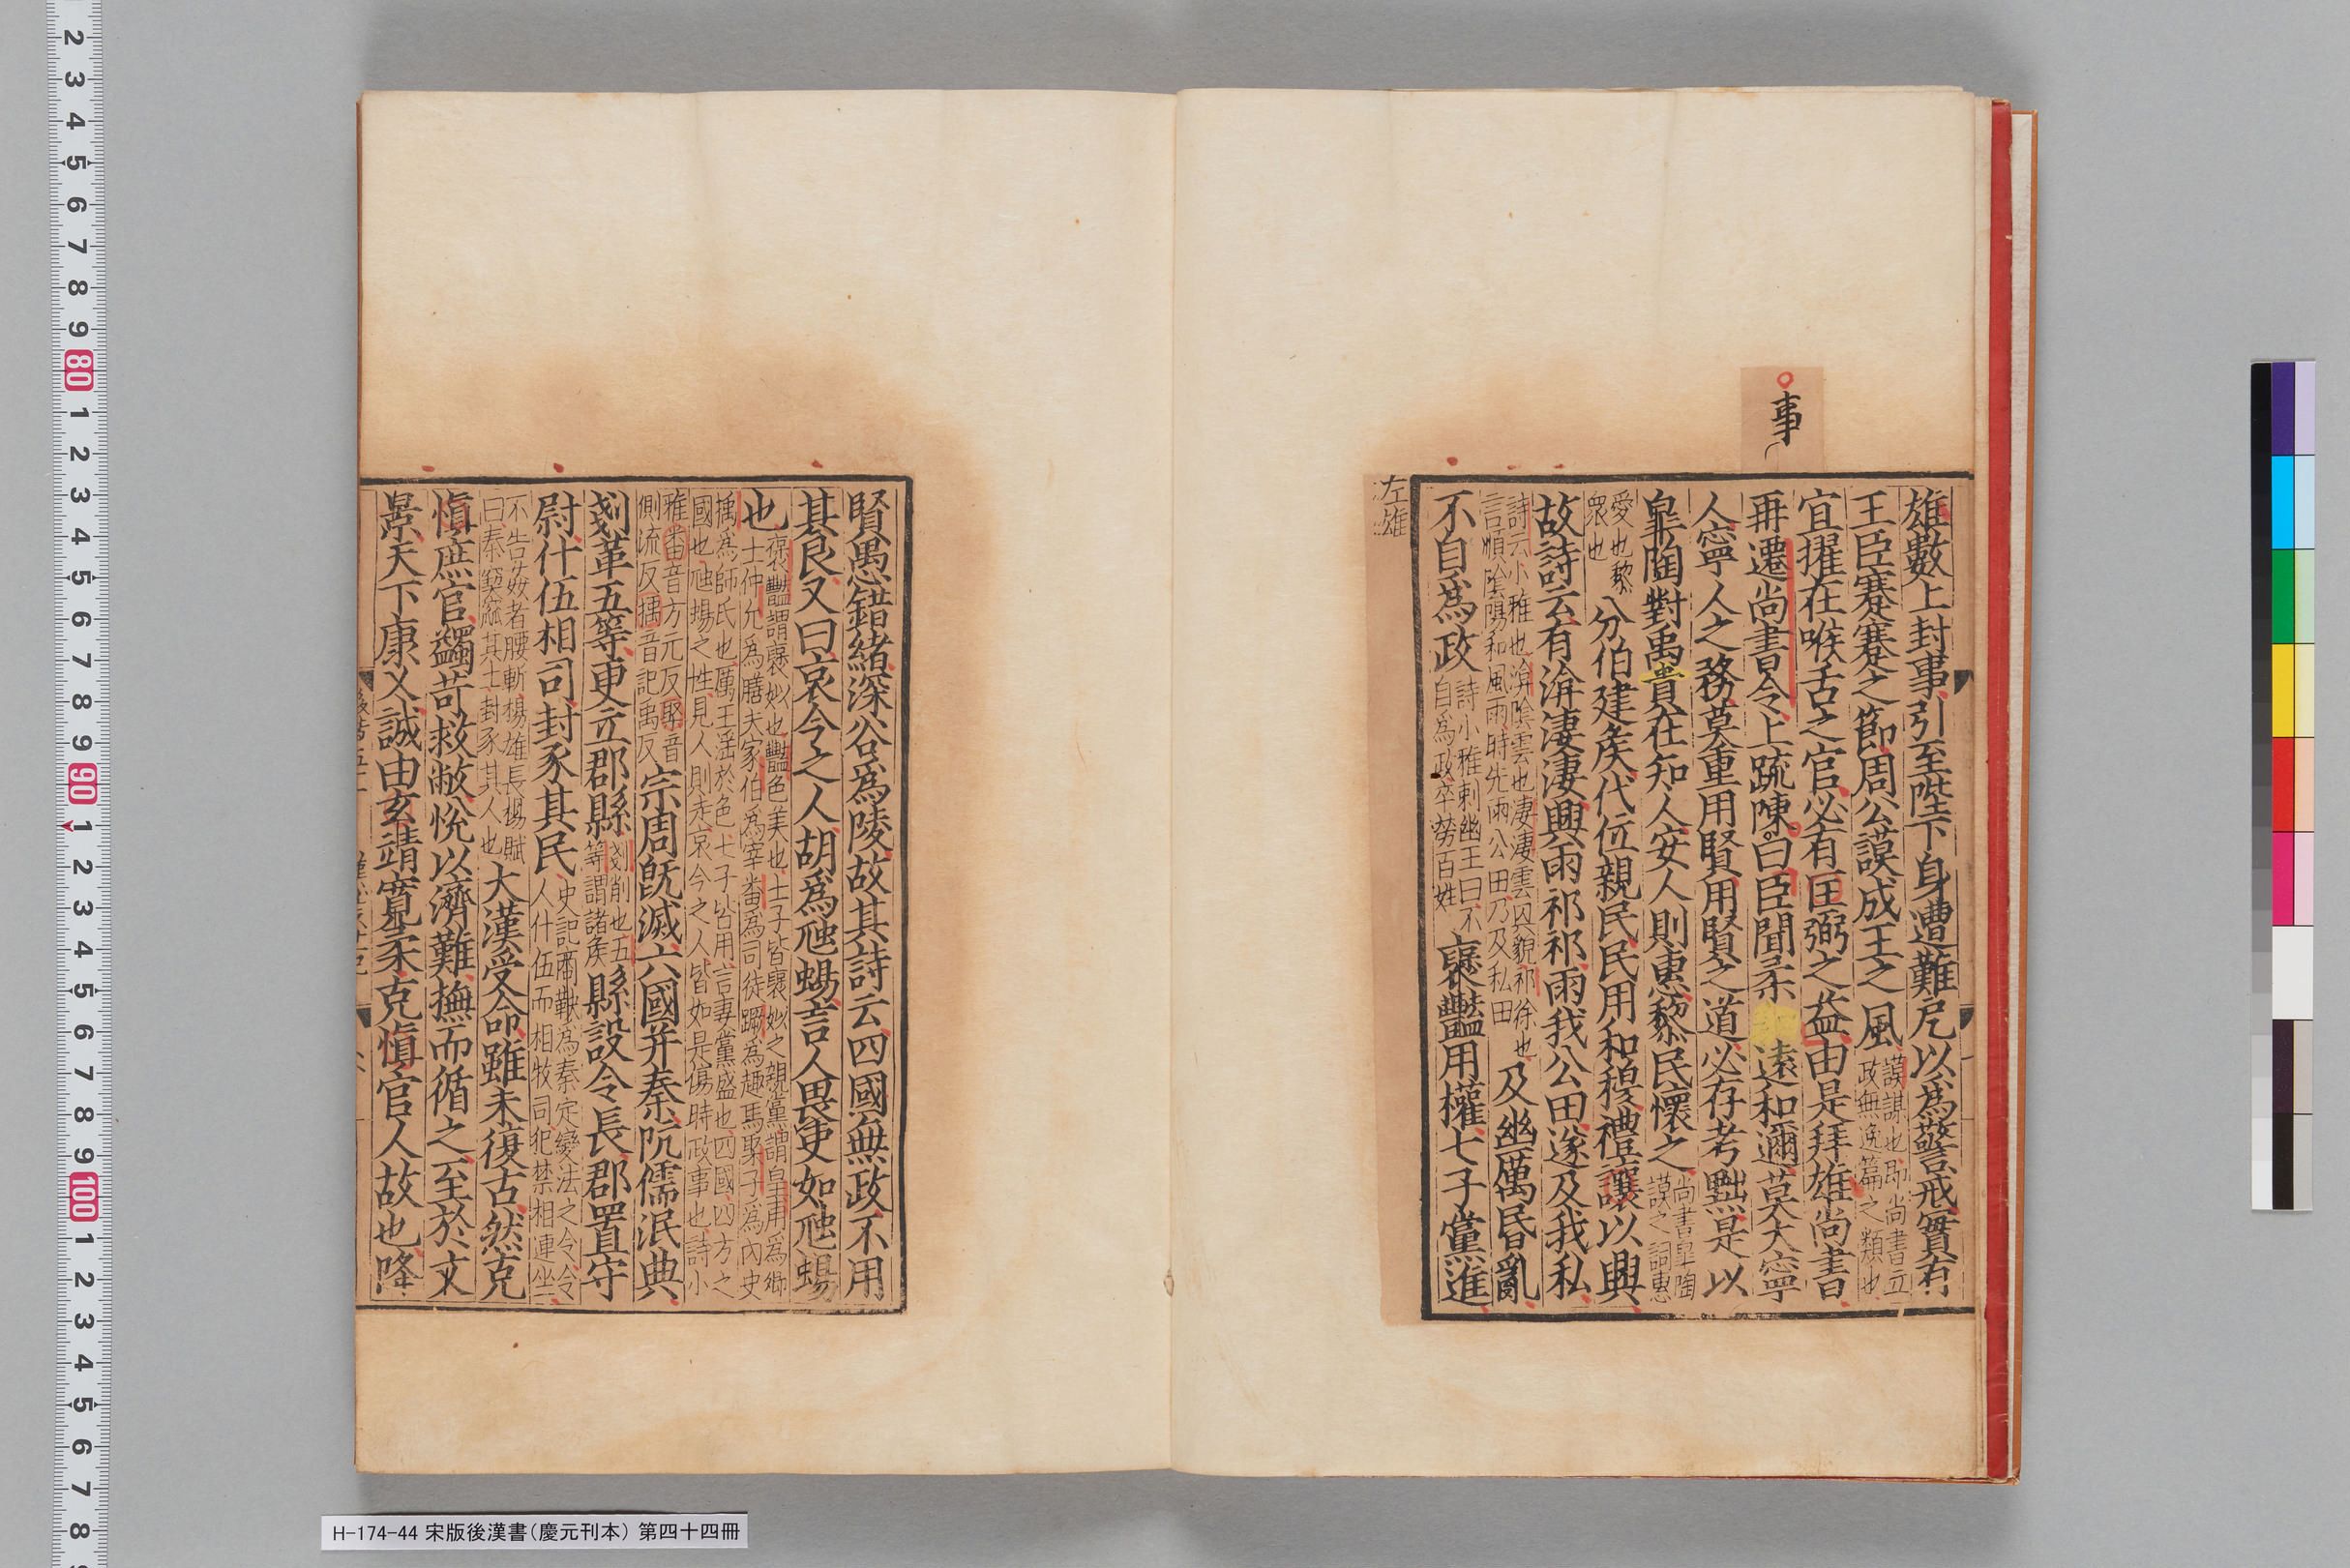 事
雄數上封事引至陛下身遭難戹以爲警戒實有
王臣蹇蹇之節周公謨成王之風謨謀也即尚書立
政無逸篇之類也
宜擢在喉舌之官必有匡弼之益由是拜雄尚書
再遷尚書令上疏陳曰臣聞柔遠和邇莫大寧
人寧人之務莫重用賢用賢之道必存考黜是以
皐陶對禹貴在知人安人則惠黎民懷之尚書皐陶
謨之詞惠
愛也黎
衆也分伯建矦代位親民民用和穆禮讓以興
故詩云有渰淒淒興雨祁祁雨我公田遂及我私
詩云小雅也渰陰雲也淒淒雲皃貌祁徐也
言順陰陽和風雨時先雨公田乃及私田及幽厲昏亂
不自爲政詩小雅刺幽王曰不
自爲政卒勞百姓襃豔用權七子黨進
左雄
賢愚錯緒深谷爲陵故其詩云四國無政不用
其良又曰哀今之人胡爲虺蜴言人畏吏如虺蜴
也襃豔謂襃姒也豔色美也七子皆襃姒之親黨謂皇甫爲卿
士仲允爲膳夫家伯爲宰番爲司徒蹶爲趣馬棸子爲內史
楀爲師氏也厲王淫於色七子皆用言妻黨盛也四國四方之
國也虺蜴之性見人則走哀今之人皆如是傷時政事也詩小
雅番音方元反棸音
側流反楀音記禹反宗周旣滅六國并秦阬儒泯典
剗革五等更立郡縣剗削也五
等謂諸矦縣設令長郡置守
尉什伍相司封豕其民史記商鞅爲秦定變法之令令
人什伍而相牧司犯禁相連坐
不告姦者腰斬楊雄長楊賦
曰秦窫窳其士封豕其人也大漢受命雖未復古然克
愼庶官蠲苛救敝悅以濟難撫而循之至於文
景天下康乂誠由玄靖寬柔克愼官人故也降
H-174-44 宋版後漢書（慶元刊本） 第四十四冊
2 3 4 5 6 7 8 9 80 1 2 3 4 5 6 7 8 9 90 1 2 3 4 5 6 7 8 9 100 1 2 3 4 5 6 7 8